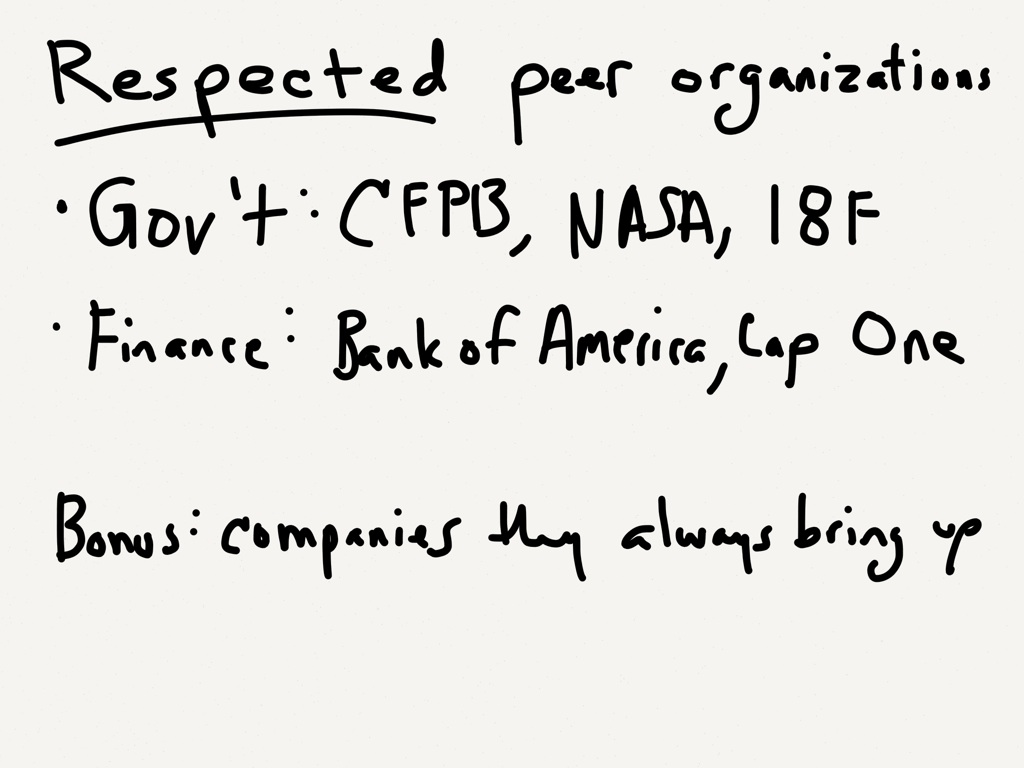 Respected peer organizations
• Gov't: CFPB, NASA, 18F
• Finance: Bank of America, Cap One
Bonus: companies they always bring up